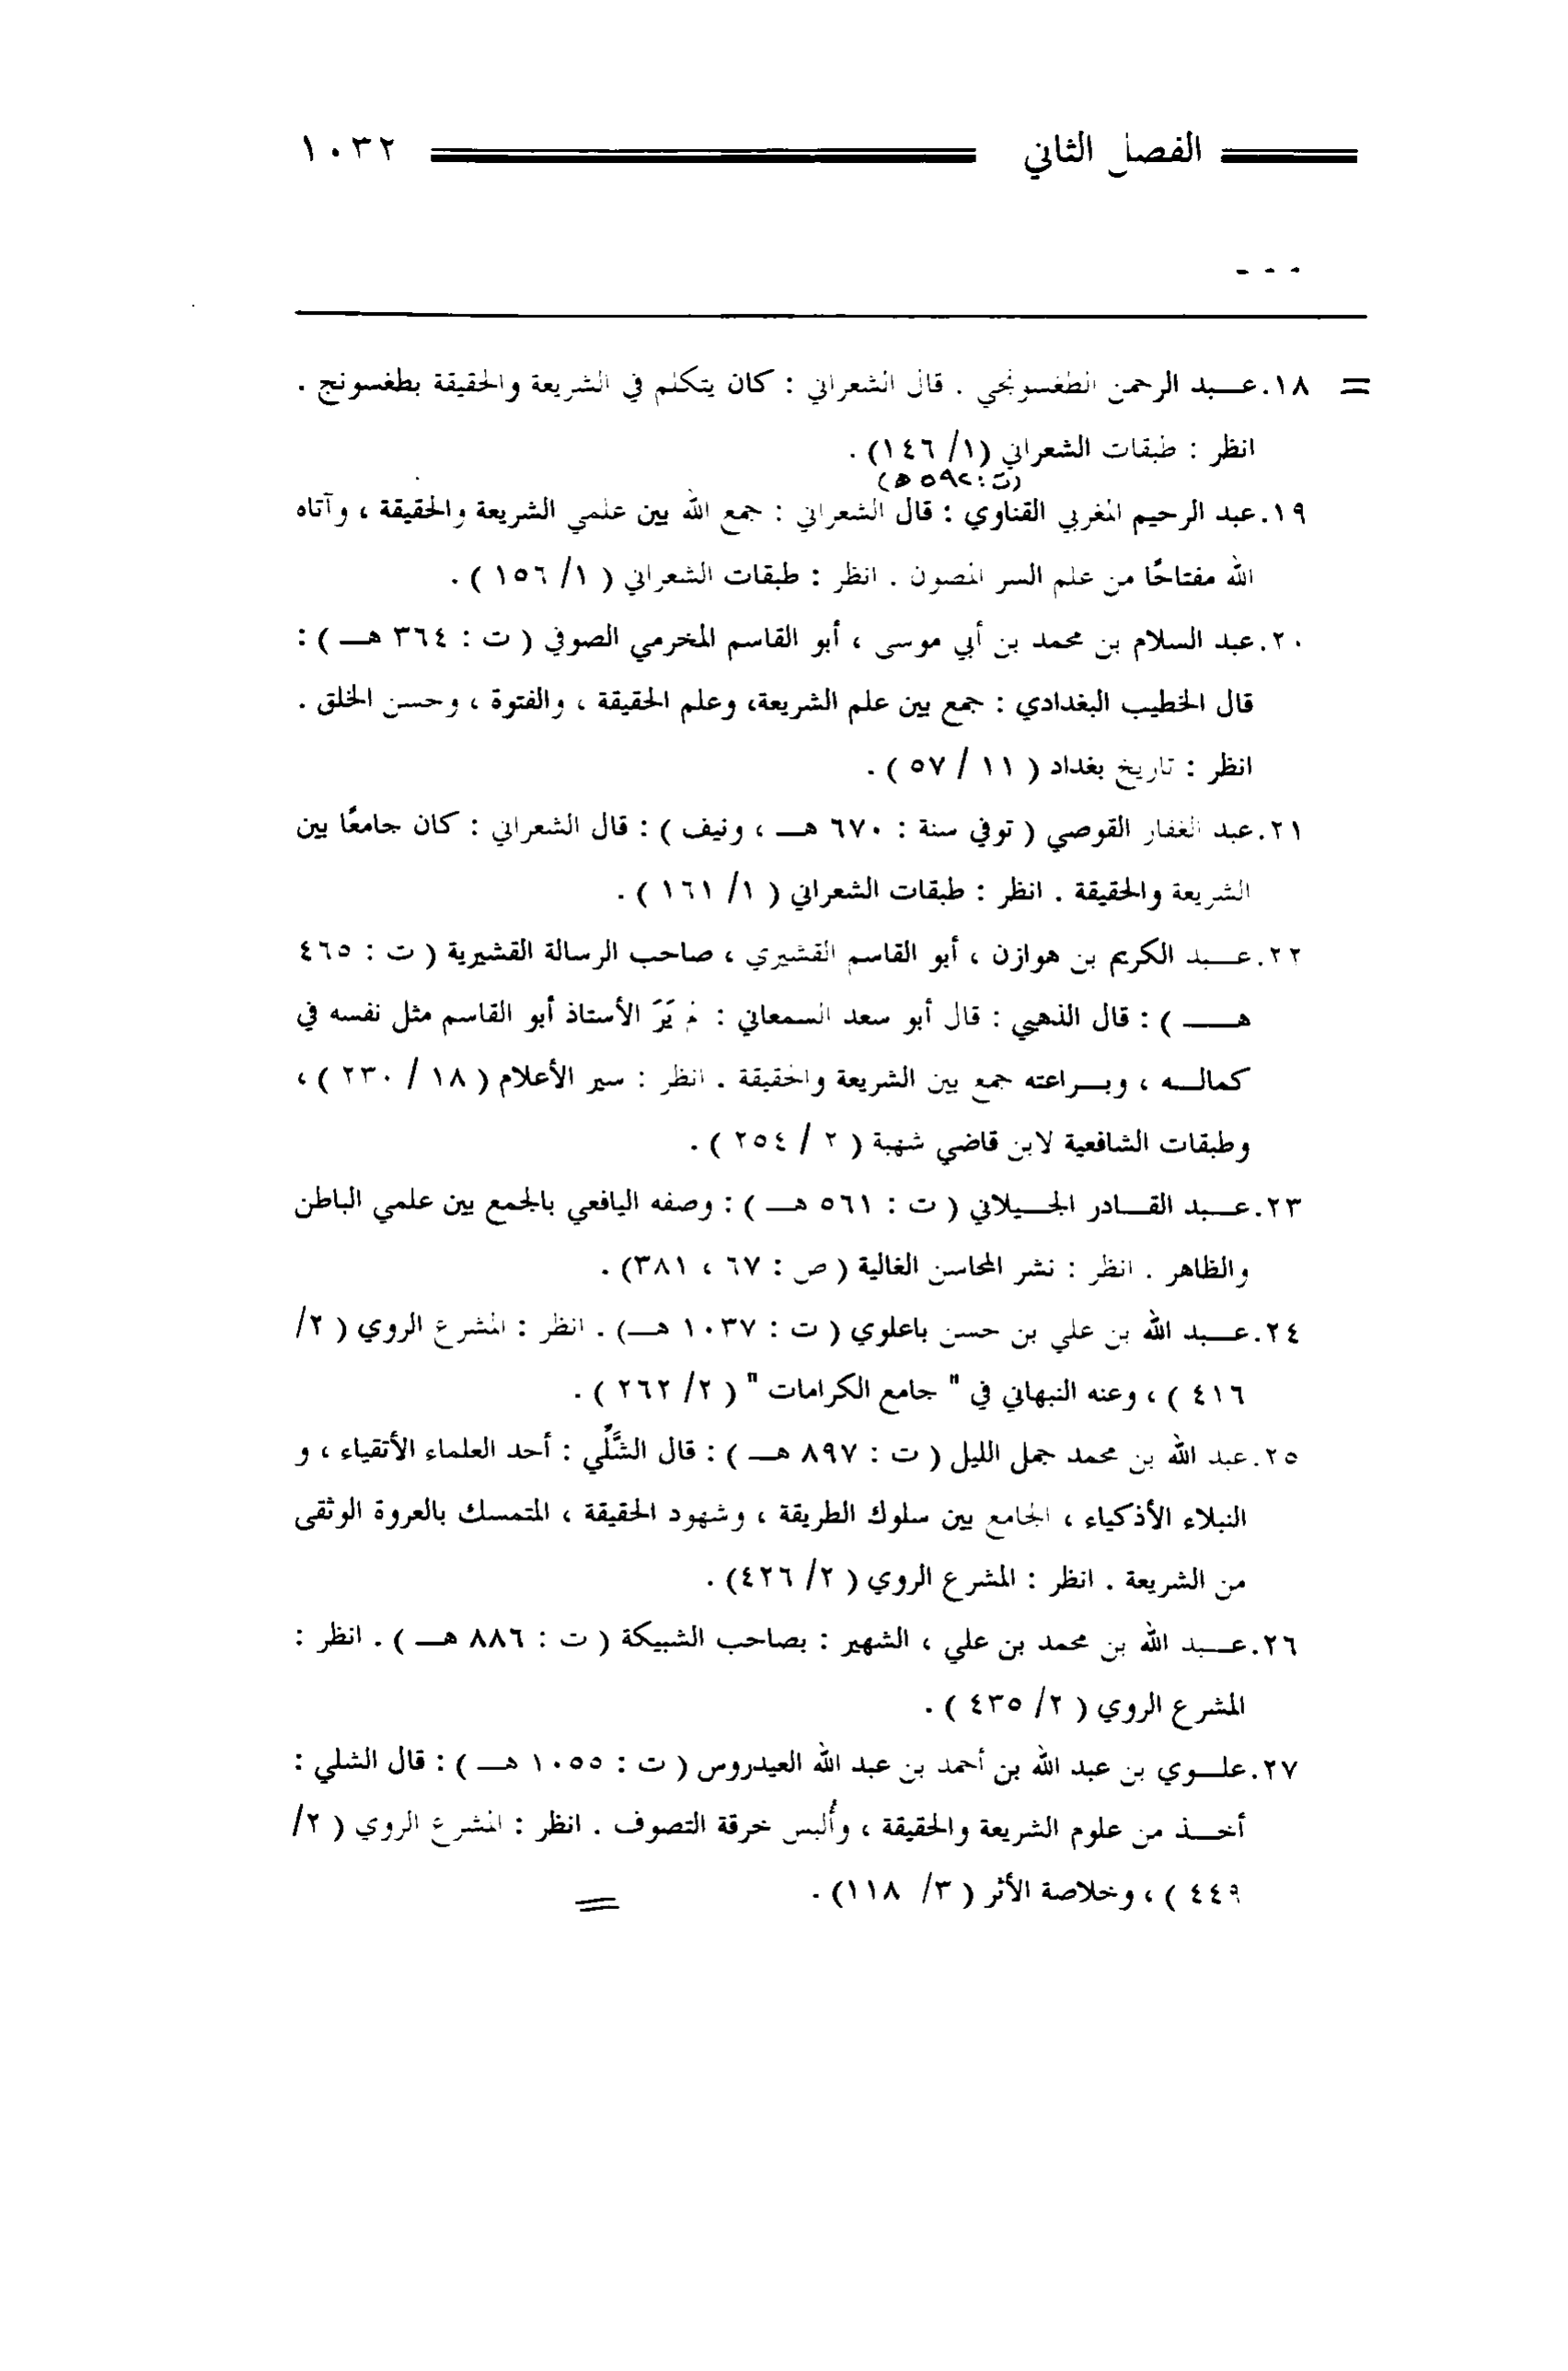 الفصل الثاني ١٠٣٢
- - -
= ١٨. عبد الرحمن الطفسونجي . قال الشعراني : كان يتكلم في الشريعة والحقيقة بطفسونج .
انظر : طبقات الشعراني (١/ ١٤٦) .
(ت: ٥٩٢ ه)
١٩. عبد الرحيم المغربي القناوي : قال الشعراني : جمع الله بين علمي الشريعة والحقيقة ، وآتاه
الله مفتاحًا من علم السر المصون . انظر : طبقات الشعراني ( ١/ ١٥٦ ) .
٢٠. عبد السلام بن محمد بن أبي موسى ، أبو القاسم المخرمي الصوفي ( ت : ٣٦٤ هـ ) :
قال الخطيب البغدادي : جمع بين علم الشريعة، وعلم الحقيقة ، والفتوة ، وحسن الخلق .
انظر : تاريخ بغداد ( ١١ / ٥٧ ) .
٢١. عبد الغفار القوصي ( توفي سنة : ٦٧٠ هـ ، ونيف ) : قال الشعراني : كان جامعًا بين
الشريعة والحقيقة . انظر : طبقات الشعراني ( ١/ ١٦١ ) .
٢٢. عبد الكريم بن هوازن ، أبو القاسم القشيري ، صاحب الرسالة القشيرية ( ت : ٤٦٥
هـ ) : قال الذهبي : قال أبو سعد السمعاني : لم يَرَ الأستاذ أبو القاسم مثل نفسه في
كماله ، وبراعته جمع بين الشريعة والحقيقة . انظر : سير الأعلام ( ١٨ / ٢٣٠ ) ،
وطبقات الشافعية لابن قاضي شهبة ( ٢ / ٢٥٤ ) .
٢٣. عبد القادر الجيلاني ( ت : ٥٦١ هـ ) : وصفه اليافعي بالجمع بين علمي الباطن
والظاهر . انظر : نشر المحاسن الغالية ( ص : ٦٧ ، ٣٨١) .
٢٤. عبد الله بن علي بن حسن باعلوي ( ت : ١٠٣٧ هـ) . انظر : المشرع الروي ( ٢/
٤١٦ ) ، وعنه النبهاني في " جامع الكرامات " ( ٢/ ٢٦٢ ) .
٢٥. عبد الله بن محمد جمل الليل ( ت : ٨٩٧ هـ ) : قال الشِّلِّي : أحد العلماء الأتقياء ، و
النبلاء الأذكياء ، الجامع بين سلوك الطريقة ، وشهود الحقيقة ، المتمسك بالعروة الوثقى
من الشريعة . انظر : المشرع الروي ( ٢/ ٤٢٦) .
٢٦. عبد الله بن محمد بن علي ، الشهير : بصاحب الشبيكة ( ت : ٨٨٦ هـ ) . انظر :
المشرع الروي ( ٢/ ٤٣٥ ) .
٢٧. علوي بن عبد الله بن أحمد بن عبد الله العيدروس ( ت : ١٠٥٥ هـ ) : قال الشلي :
أخذ من علوم الشريعة والحقيقة ، وأُلبس خرقة التصوف . انظر : المشرع الروي ( ٢/
٤٤٩ ) ، وخلاصة الأثر ( ٣/ ١١٨) . =